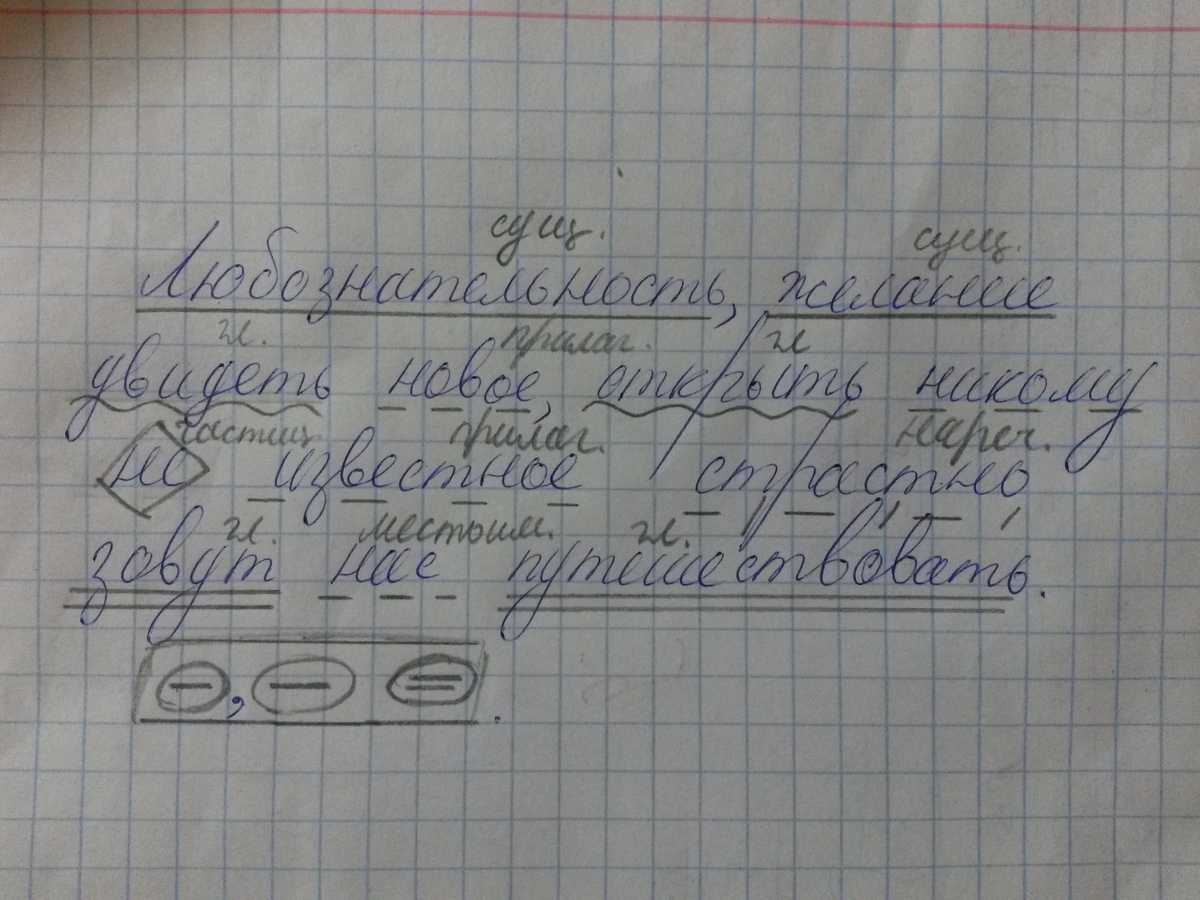 сущ. сущ.
Любознательность, желание
гл. прилаг. гл
увидеть новое, открыть никому
частиц. прилаг. нареч.
не известное страстно
гл. местоим. гл.
зовут нас путешествовать.